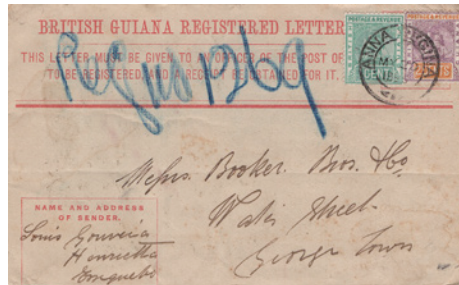 BRITISH GUIANA REGISTERED LETTER
THIS LETTER MUST BE GIVEN TO OFFICER OF THE POST OF
TO BE REGISTERED, AND A RECEIPT BE OBTAINED FOR IT.
POSTAGE & REVENUE
POSTAGE & REVENUE
ANNA REGINA
MY
Messrs. Booker Bros. & Co
Water Street
George Town
NAME AND ADDRESS
OF SENDER.
Louis Gouveia
Henrietta
Essequebo